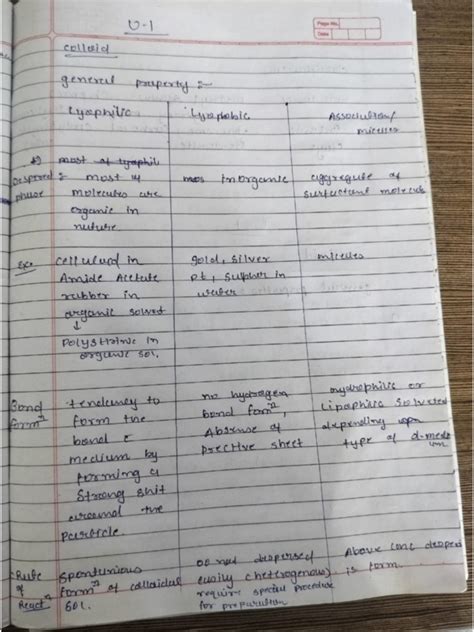 U-1
Page No.
Date
colloid
general property :-
Lyophilic
Lyophobic
Association/
micelles
most of lyophil
Dispersed
phase
:- most of
molecules are
organic in
nuture
inorganic
aggregate of
surfactant molecule
Exo
cellulued in
Amide Acetate
rubber in
organic solvet
↓
Polystirine in
organic sol.
gold, silver
pt, sulpher in
water
micelles
Bond
formⁿ
tendency to
form the
bond c
medium by
forming a
strong shit
around the
particle.
no hydrogen
bond formⁿ,
Absence of
prective sheet
hydrophilic or
Lipophilic solvated
depending upon
type of d-medi
um.
Rate
of
Reactⁿ
spontunious
formⁿ of colloidal
sol.
do not despersed
easily (heterogenous)
require special procedure
for prepuration
Above CMC desperd
is form.